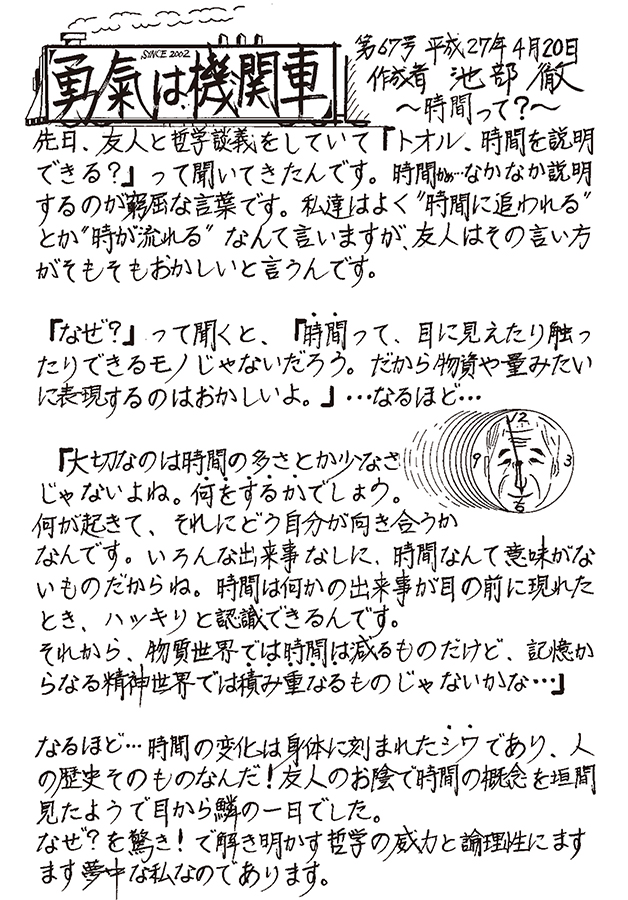 SINCE 2002
勇氣は機関車
第67号 平成27年4月20日
作成者 池部 徹
〜時間って？〜
先日、友人と哲学談義をしていて『トオル、時間を説明
できる？』って聞いてきたんです。時間かぁ…なかなか説明
するのが窮屈な言葉です。私達はよく〝時間に追われる〟
とか〝時が流れる〟なんて言いますが、友人はその言い方
がそもそもおかしいと言うんです。
『なぜ？』って聞くと、『時間って、目に見えたり触っ
たりできるモノじゃないだろう。だから物資や量みたい
に表現するのはおかしいよ。』…なるほど…
『大切なのは時間の多さとか少なさ
じゃないよね。何をするかでしょう。
何が起きて、それにどう自分が向き合うか
なんです。いろんな出来事なしに、時間なんて意味がな
いものだからね。時間は何かの出来事が目の前に現れた
とき、ハッキリと認識できるんです。
それから、物質世界では時間は減るものだけど、記憶か
らなる精神世界では積み重なるものじゃないかな…』
12
9
3
6
なるほど…時間の変化は身体に刻まれたシワであり、人
の歴史そのものなんだ！友人のお陰で時間の概念を垣間
見たようで目から鱗の一日でした。
なぜ？を驚き！で解き明かす哲学の威力と論理性にます
ます夢中な私なのであります。